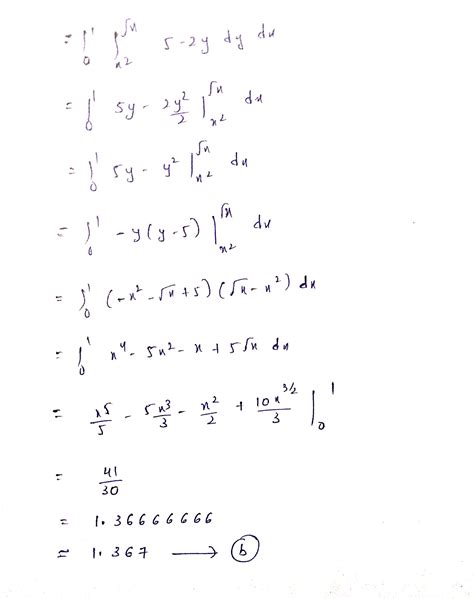 = ∫₀¹ ∫ₓ₂^√x 5-2y dy dx
= ∫₀¹ 5y - 2y²/2 |ₓ₂^√x dx
= ∫₀¹ 5y - y² |ₓ₂^√x dx
= ∫₀¹ -y(y-5) |ₓ₂^√x dx
= ∫₀¹ (-x² - √x + 5) (√x - x²) dx
= ∫₀¹ x⁴ - 5x² - x + 5√x dx
= x⁵/5 - 5x³/3 - x²/2 + 10x^3/2/3 |₀¹
= 41/30
= 1.36666666
≈ 1.367 → (b)